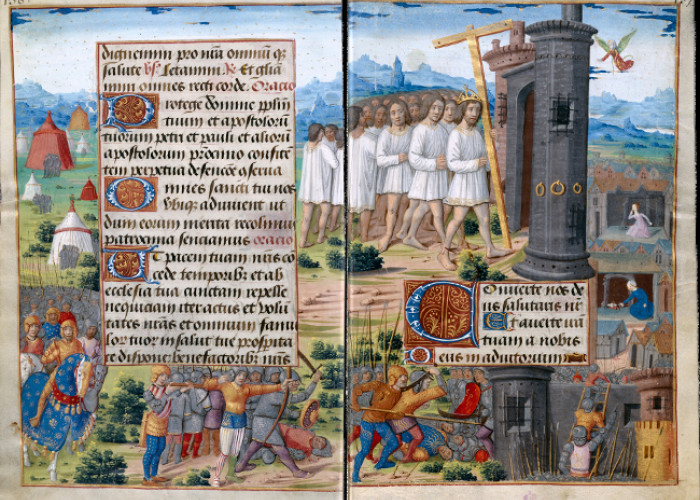 dignemini pro nr̃a omnium q̃
salute v̉s. Letamini R̃. Et gl̃ia
mini omnes recti corde. Oracio
Protege domine pp̃lm̃
tuum et apostolorum
tuorum petri et pauli et aliorum
apostolorum
tem perpetua defencõe cõserua
Omnes sancti tui nos
vbiq̃ adiuuent ut
dum eorum merita recolim̃
patrocinia senciamus oracio
Et pacem tuam nr̃is cõ
cede temporib; et ab
ecclesia tua cunctam repelle
nequiciam iter actus et volũ
tates nr̃as et omnium famu
lor tuor in salut tue prosp̃ita
te dispone benefactorib; nr̃is
Conuerte nos de
us salutaris nr̃
Et auerte irã
tuam a nobis
Deus in adiutorium